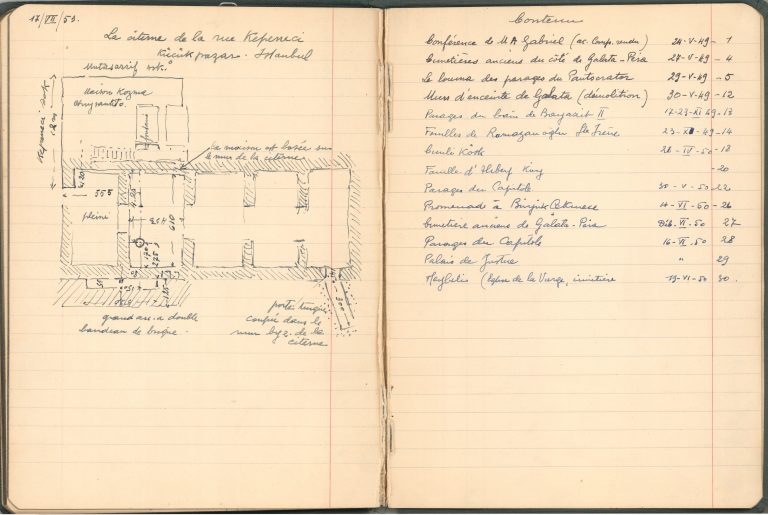 17/VII/50.
La citerne de la rue Kepeneci
Küçük pazar. Istanbul
Mutasarrif sok.
Kepeneci sok
Maison Kozma
la maison est basée sur
le mur de la citerne
4.20
355
pleini
4.25
458
610
225
grand arc a double
bandeau de brique.
porte turque
coupée dans le
mur byz. de la
citerne
300
Contenu
Conférence de M A Gabriel (ac. Comp. rendu) 24-V-49-1
Cimetières anciens du côté de Galata-Péra 27-V-49-4
Le louma des parages du Pantocrator 29-V-49-5
Murs d'enceinte de Galata (démolition) 30-V-49-12
Parages du bain de Bayazit II 17-23-XI-49-13
Fouilles de Ramazanoglu Ste Irène 23-XI-49-14
Cinili Kösk 26-IV-50-18
Famille d'Hubert King -20
Parages du Capitole 30-V-50-22
Promenade à Büyük Çekmece 4-VI-50-26
Cimetière anciens de Galata-Péra Dib. VI-50 27
Parages du Capitole 16-VI-50 28
Palais de Justice " 29
Heybelis (Eglise de la Vierge, cimitière 19-VI-50 30.